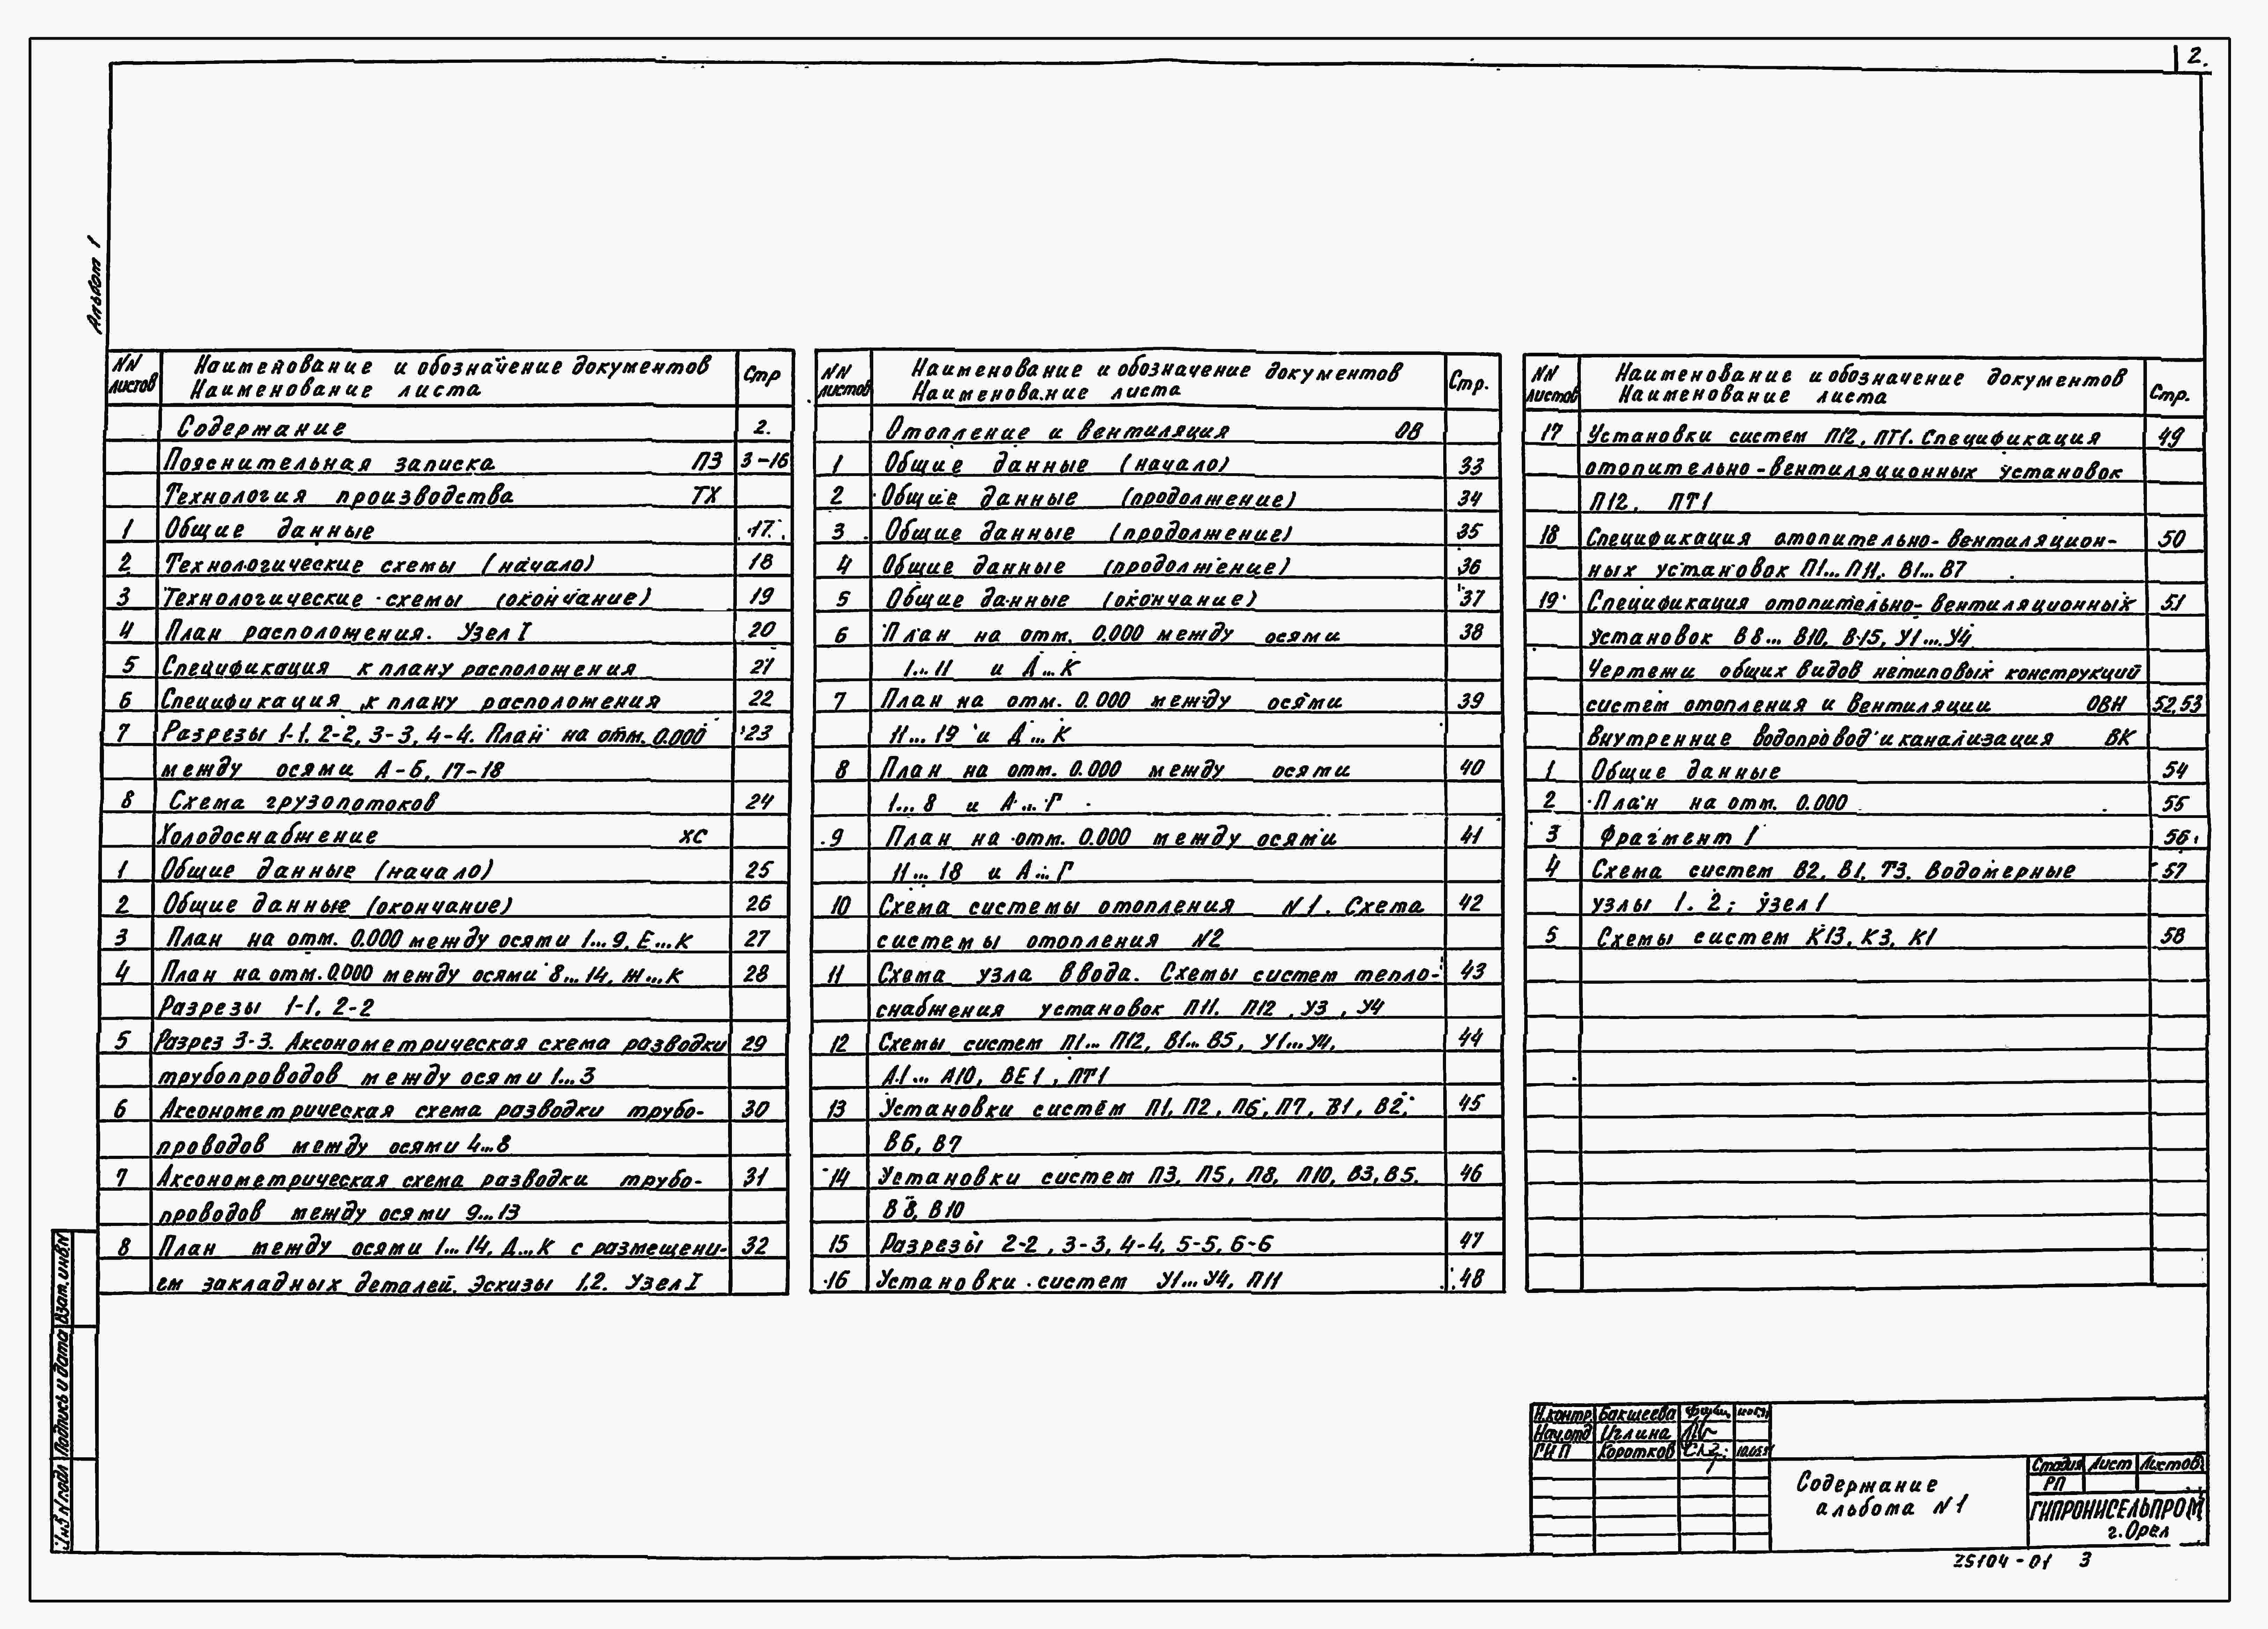 2.
Альбом 1
NN листов Наименование и обозначение документов Стр
Наименование листа
Содержание 2.
Пояснительная записка ПЗ 3-16
Технология производства ТХ
1 Общие данные 17
2 Технологические схемы (начало) 18
3 Технологические схемы (окончание) 19
4 План расположения. Узел I 20
5 Спецификация к плану расположения 21
6 Спецификация к плану расположения 22
7 Разрезы 1-1, 2-2, 3-3, 4-4. План на отм. 0.000 23
между осями А-Б, 17-18
8 Схема грузопотоков 24
Холодоснабжение ХС
1 Общие данные (начало) 25
2 Общие данные (окончание) 26
3 План на отм. 0.000 между осями 1...9, Е...К 27
4 План на отм. 0.000 между осями 8...14, Ж...К 28
Разрезы 1-1, 2-2
5 Разрез 3-3. Аксонометрическая схема разводки 29
трубопроводов между осями 1...3
6 Аксонометрическая схема разводки трубо- 30
проводов между осями 4...8
7 Аксонометрическая схема разводки трубо- 31
проводов между осями 9...13
8 План между осями 1...14, Д...К с размещени- 32
ем закладных деталей. Эскизы 1,2. Узел I
NN листов Наименование и обозначение документов Стр.
Наименование листа
Отопление и вентиляция ОВ
1 Общие данные (начало) 33
2 Общие данные (продолжение) 34
3 Общие данные (продолжение) 35
4 Общие данные (продолжение) 36
5 Общие данные (окончание) 37
6 План на отм. 0.000 между осями 38
1...11 и Д...К
7 План на отм. 0.000 между осями 39
11...19 и Д...К
8 План на отм. 0.000 между осями 40
1...8 и А...Г
9 План на отм. 0.000 между осями 41
11...18 и А...Г
10 Схема системы отопления N1. Схема 42
системы отопления N2
11 Схема узла ввода. Схемы систем тепло- 43
снабжения установок П11, П12, У3, У4
12 Схемы систем П1...П12, В1...В5, У1...У4, 44
А1...А10, ВЕ1, ПТ1
13 Установки систем П1, П2, П6, П7, В1, В2, 45
В6, В7
14 Установки систем П3, П5, П8, П10, В3, В5, 46
В8, В10
15 Разрезы 2-2, 3-3, 4-4, 5-5, 6-6 47
16 Установки систем У1...У4, П11 48
NN листов Наименование и обозначение документов Стр.
Наименование листа
17 Установки систем П12, ПТ1. Спецификация 49
отопительно-вентиляционных установок
П12, ПТ1
18 Спецификация отопительно-вентиляцион- 50
ных установок П1...П11, В1...В7
19 Спецификация отопительно-вентиляционных 51
установок В8...В10, В15, У1...У4
Чертежи общих видов нетиповых конструкций
систем отопления и вентиляции ОВН 52,53
Внутренние водопровод и канализация ВК
1 Общие данные 54
2 План на отм. 0.000 55
3 Фрагмент 1 56
4 Схема систем В2, В1, Т3. Водомерные 57
узлы 1, 2; узел 1
5 Схемы систем К13, К3, К1 58
Взам. инв.N
Подпись и дата
Инв N подл
Н.контр. Бакшеева
Нач.отд Иглина
ГИП Коротков
Содержание
альбома N1
Стадия Лист Листов
РП
ГИПРОНИСЕЛЬПРОМ
г.Орел
25104-01 3